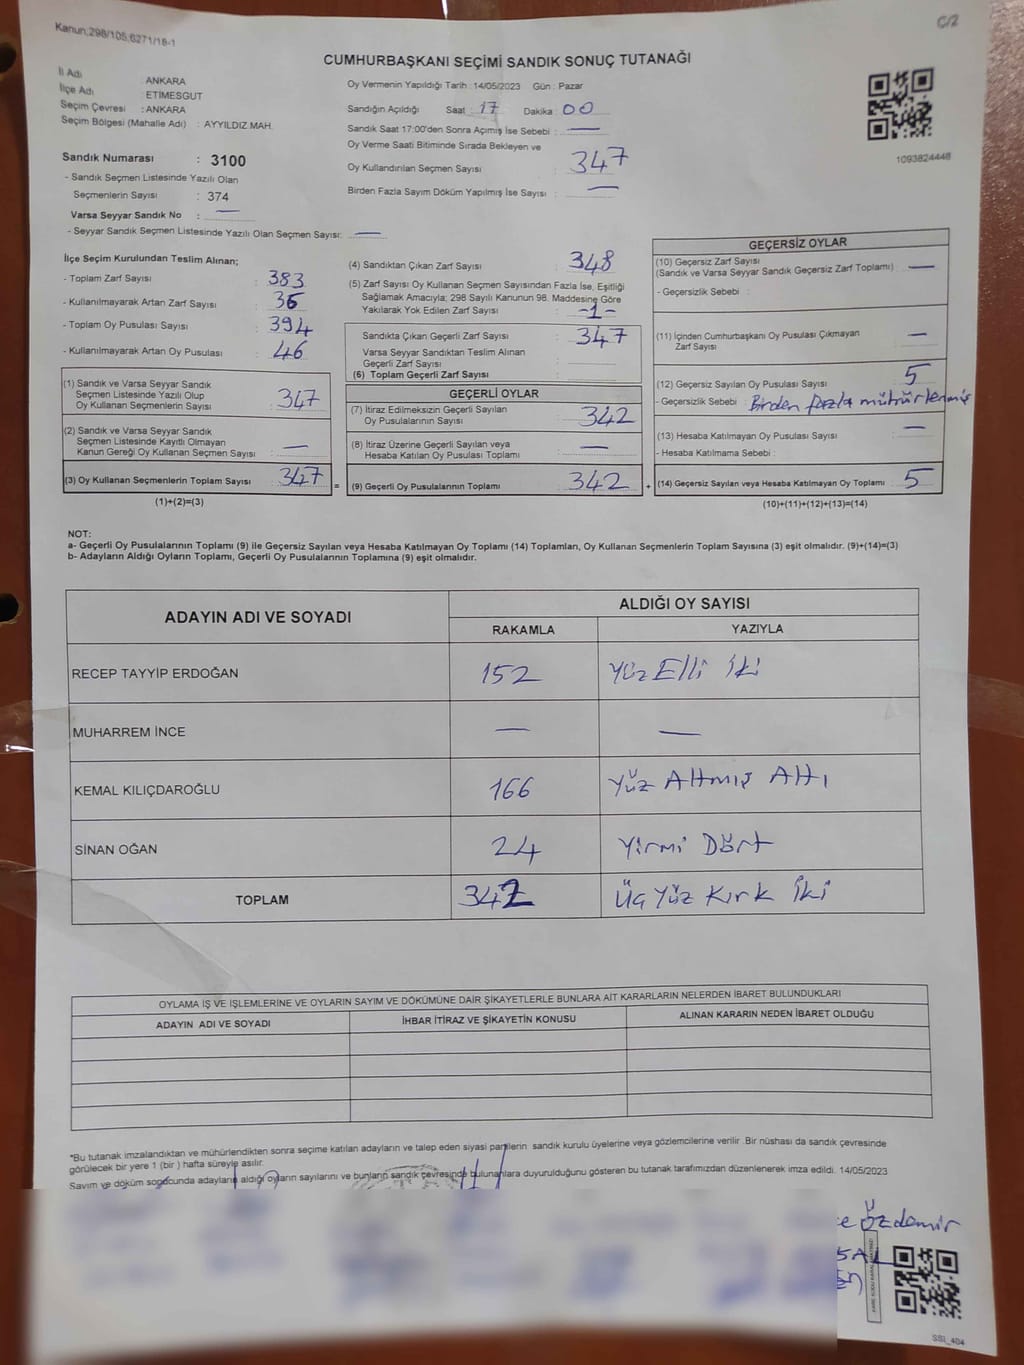 Kanun;298/105,6271/18-1
C/2
CUMHURBAŞKANI SEÇİMİ SANDIK SONUÇ TUTANAĞI
İl Adı ANKARA
İlçe Adı ETİMESGUT
Seçim Çevresi : ANKARA
Seçim Bölgesi (Mahalle Adı) : AYYILDIZ MAH.
Sandık Numarası : 3100
- Sandık Seçmen Listesinde Yazılı Olan
Seçmenlerin Sayısı : 374
Varsa Seyyar Sandık No : —
- Seyyar Sandık Seçmen Listesinde Yazılı Olan Seçmen Sayısı: —
Oy Vermenin Yapıldığı Tarih : 14/05/2023 Gün : Pazar
Sandığın Açıldığı Saat : 17 Dakika : 00
Sandık Saat 17:00'den Sonra Açımış İse Sebebi : —
Oy Verme Saati Bitiminde Sırada Bekleyen ve
Oy Kullandırılan Seçmen Sayısı : 347
Birden Fazla Sayım Döküm Yapılmış İse Sayısı : —
1093824448
İlçe Seçim Kurulundan Teslim Alınan;
- Toplam Zarf Sayısı : 383
- Kullanılmayarak Artan Zarf Sayısı : 36
- Toplam Oy Pusulası Sayısı : 394
- Kullanılmayarak Artan Oy Pusulası : 46
(1) Sandık ve Varsa Seyyar Sandık
Seçmen Listesinde Yazılı Olup
Oy Kullanan Seçmenlerin Sayısı : 347
(2) Sandık ve Varsa Seyyar Sandık
Seçmen Listesinde Kayıtlı Olmayan
Kanun Gereği Oy Kullanan Seçmen Sayısı : —
(3) Oy Kullanan Seçmenlerin Toplam Sayısı : 347 =
(1)+(2)=(3)
(4) Sandıktan Çıkan Zarf Sayısı : 348
(5) Zarf Sayısı Oy Kullanan Seçmen Sayısından Fazla İse, Eşitliği
Sağlamak Amacıyla; 298 Sayılı Kanunun 98. Maddesine Göre
Yakılarak Yok Edilen Zarf Sayısı : -1-
Sandıkta Çıkan Geçerli Zarf Sayısı : 347
Varsa Seyyar Sandıktan Teslim Alınan
Geçerli Zarf Sayısı :
(6) Toplam Geçerli Zarf Sayısı :
GEÇERLİ OYLAR
(7) İtiraz Edilmeksizin Geçerli Sayılan
Oy Pusulalarının Sayısı : 342
(8) İtiraz Üzerine Geçerli Sayılan veya
Hesaba Katılan Oy Pusulası Toplamı : —
(9) Geçerli Oy Pusulalarının Toplamı : 342 +
GEÇERSİZ OYLAR
(10) Geçersiz Zarf Sayısı
(Sandık ve Varsa Seyyar Sandık Geçersiz Zarf Toplamı) : —
- Geçersizlik Sebebi :
(11) İçinden Cumhurbaşkanı Oy Pusulası Çıkmayan
Zarf Sayısı : —
(12) Geçersiz Sayılan Oy Pusulası Sayısı : 5
- Geçersizlik Sebebi : Birden fazla mühürlenmiş
(13) Hesaba Katılmayan Oy Pusulası Sayısı : —
- Hesaba Katılmama Sebebi :
(14) Geçersiz Sayılan veya Hesaba Katılmayan Oy Toplamı : 5
(10)+(11)+(12)+(13)=(14)
NOT:
a- Geçerli Oy Pusulalarının Toplamı (9) ile Geçersiz Sayılan veya Hesaba Katılmayan Oy Toplamı (14) Toplamları, Oy Kullanan Seçmenlerin Toplam Sayısına (3) eşit olmalıdır. (9)+(14)=(3)
b- Adayların Aldığı Oyların Toplamı, Geçerli Oy Pusulalarının Toplamına (9) eşit olmalıdır.
ADAYIN ADI VE SOYADI ALDIĞI OY SAYISI
RAKAMLA YAZIYLA
RECEP TAYYİP ERDOĞAN 152 Yüz Elli İki
MUHARREM İNCE — —
KEMAL KILIÇDAROĞLU 166 Yüz Altmış Altı
SİNAN OĞAN 24 Yirmi Dört
TOPLAM 342 Üç Yüz Kırk İki
OYLAMA İŞ VE İŞLEMLERİNE VE OYLARIN SAYIM VE DÖKÜMÜNE DAİR ŞİKAYETLERLE BUNLARA AİT KARARLARIN NELERDEN İBARET BULUNDUKLARI
ADAYIN ADI VE SOYADI İHBAR İTİRAZ VE ŞİKAYETİN KONUSU ALINAN KARARIN NEDEN İBARET OLDUĞU
*Bu tutanak imzalandıktan ve mühürlendikten sonra seçime katılan adayların ve talep eden siyasi partilerin sandık kurulu üyelerine veya gözlemcilerine verilir .Bir nüshası da sandık çevresinde
görülecek bir yere 1 (bir ) hafta süreyle asılır.
Sayım ve döküm sonucunda adayların aldığı oyların sayılarını ve bunların sandık çevresinde bulunanlara duyurulduğunu gösteren bu tutanak tarafımızdan düzenlenerek imza edildi. 14/05/2023
Özdemir
SSİ_404